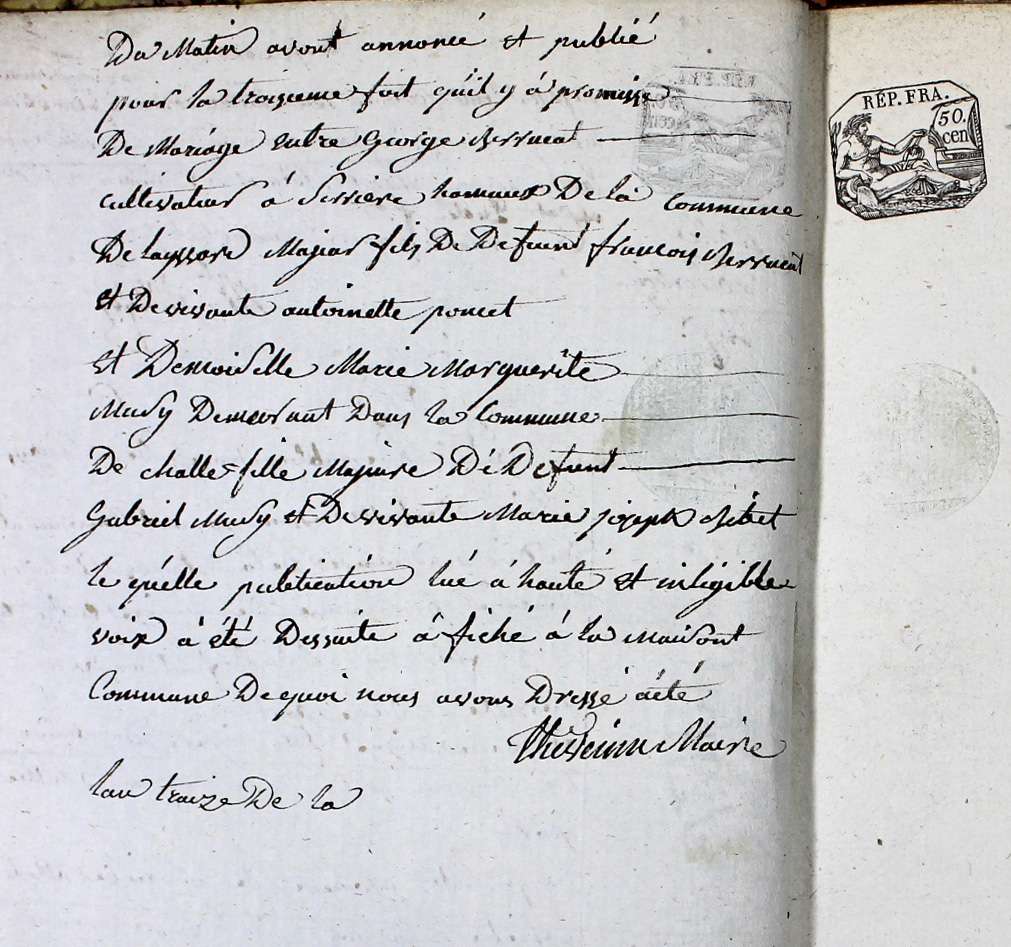 Du Matin avont annoncé et publié
pour la troisieme foit qu'il y á promesse
De Mariage entre George
cultivateur á Serriere hameaux De la Commune
De Majeur fils De Defeunt francois
et De vivante antoinette poncet
et Demoiselle Marie Marguerite
Musy Demeurant Dans la Commune
De challe fille Majeure Dé Defeunt
Gabriel Musy et De vivante Marie joseph
le quélle publication lué á hauté et inligible
voix á été Dessuite â fiché á la Maisont
Commune De quoi nous avons Dressé acté
Thevenin Maire
lan traize De la
RÉP. FRA.
50.
cen